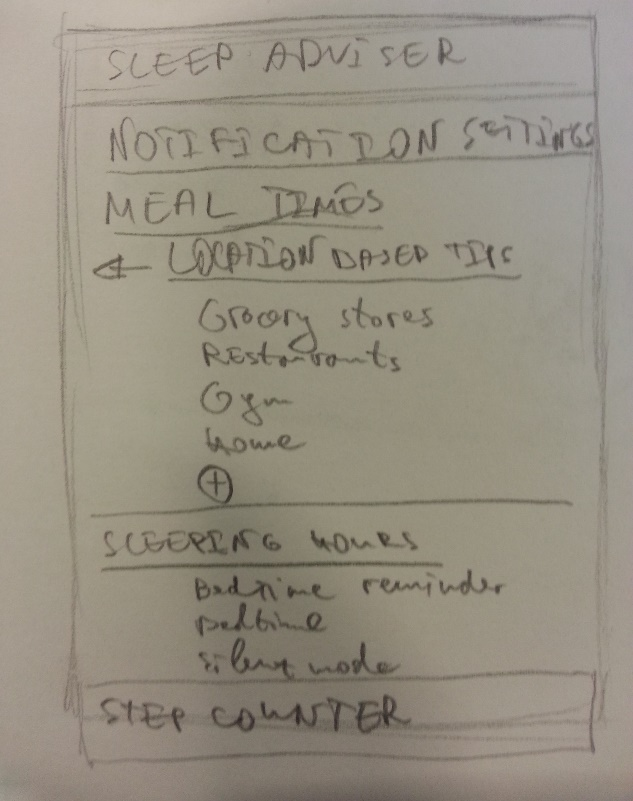 SLEEP ADVISER
NOTIFICATION SETTINGS
MEAL TIMES
LOCATION BASED TIPS
Grocery stores
REstaurants
Gym
Home
SLEEPING HOURS
Bedtime reminder
Bedtime
Silent mode
STEP COUNTER